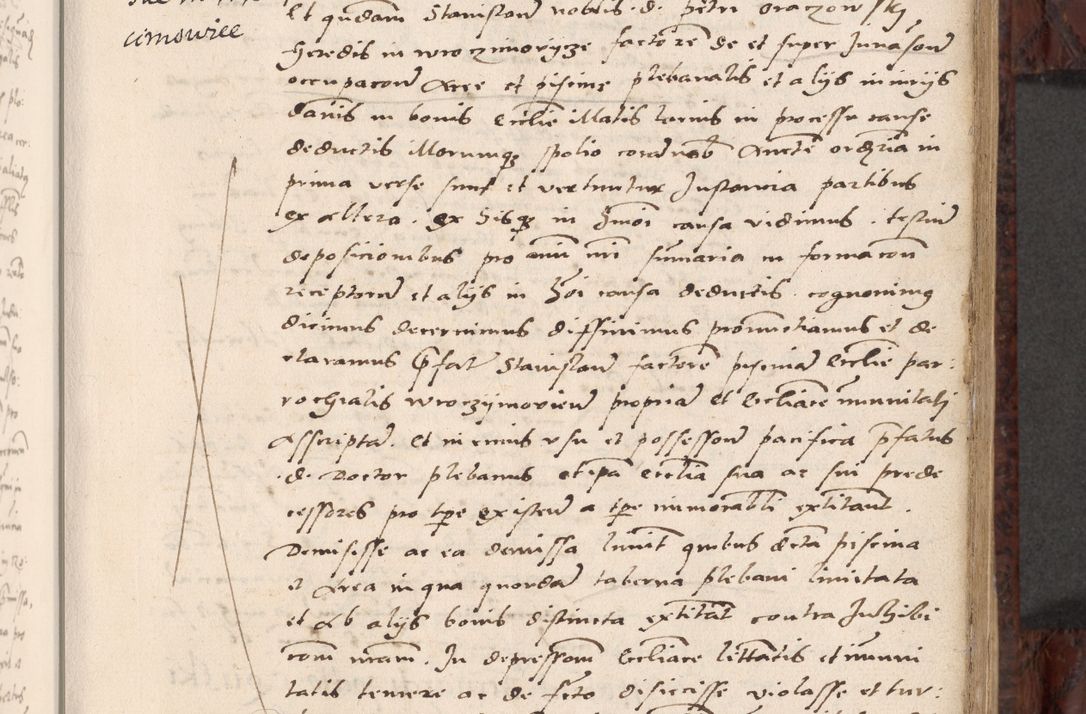 cimovicee
Et quendam Stanislaum nobilis d. petri oraczowsky
heredis in wroczimoryze factorem de et super Inuasione
occupacone Aree et piscine plebanalis et alijs iniurijs
damnis in bonis Ecclie illatis lacius in processu cause
deductis illorumq spolio coram nob Auctte ordria in
prima verse sunt et vertuntur Instancia partibus
ex altera. Ex hisq in hmoi causa vidimus. testium
deposicionibus pro aim nri sumaria in formacone
receptorum et alijs in hmoi causa deductis. cognouimus
dicimus decernimus diffinimus pronunctiamus et de
claramus pfatum Stanislaum factorem piscinam Ecclie par:
rochialis wroczymovien propriam et Eccliasce immunitati
Asscriptam. Et in cuius vsu et possessione pacifica pfatus
d. Doctor plebanus etipa Ecclia sua ac sui prede
cessores pro tpe existen a tpe immorabli extitant.
Demisisse ac ea demissa luit quibus dcta piscina
et Area in qua quondam taberna plebani limitata
et Ab alijs bonis distincta extitat contra Inhibi
conem nram. In depressionem Eccliace libttatis et immuni
tatis temere ac de fcto disiecisse violasse et tur: